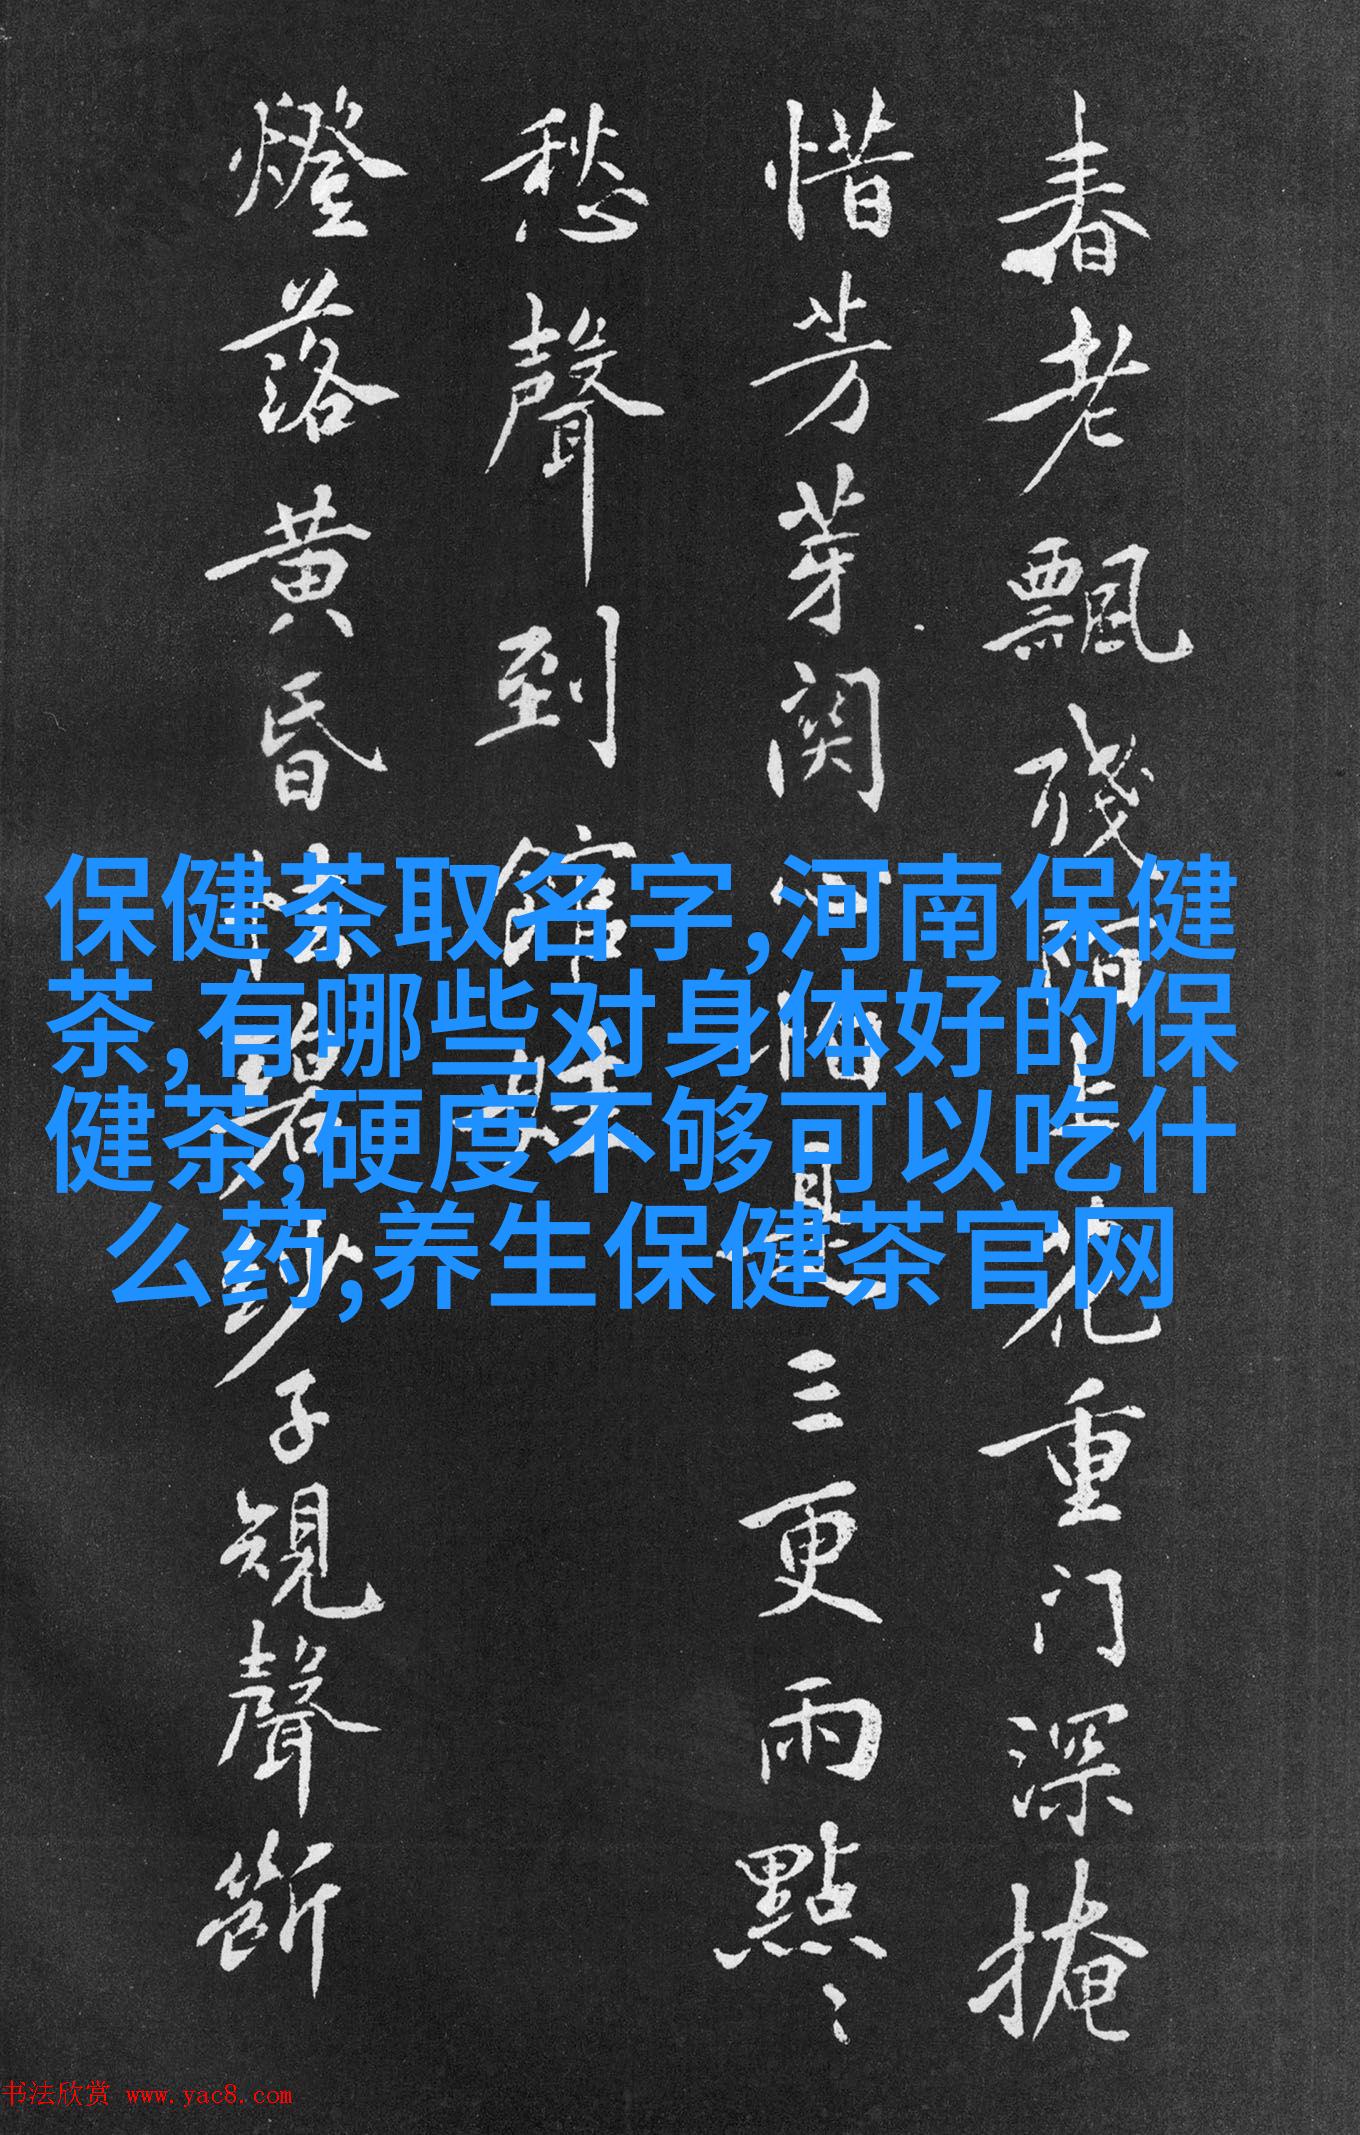 春老飄殘陌上花重门深掩
惜芳芽関是三更雨點〻
愁聲到館娃
燈落黄昏碧紗子規聲斷
保健茶取名字,河南保健
茶,有哪些对身体好的保
健茶,硬度不够可以吃什
么药,养生保健茶官网
书法欣赏 www.yac8.com